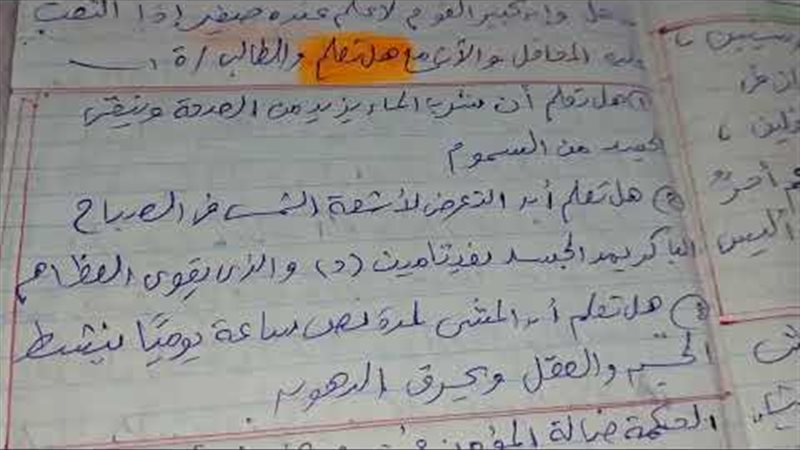 وإن كبير القوم لا علم عنده صغير إذا التفت
عليه المحافل والآن مع هل تعلم والطالب / ة
① هل تعلم أن شرب الماء يزيد من الصحة وينقى
الجسد من السموم
② هل تعلم أن التعرض لأشعة الشمس فى الصباح
الباكر يمد الجسد بفيتامين (د) والذى يقوى العظام
③ هل تعلم أن المشى لمدة نصف ساعة يوميًا ينشط
الجسم والعقل ويحرق الدهون
الحكمة ضالة المؤمن
أمر
أليس